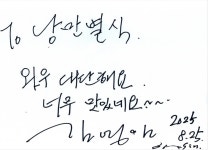 To 낭만별식.
와우 대단해요
너무 맛있네요~~
2025
8.25.